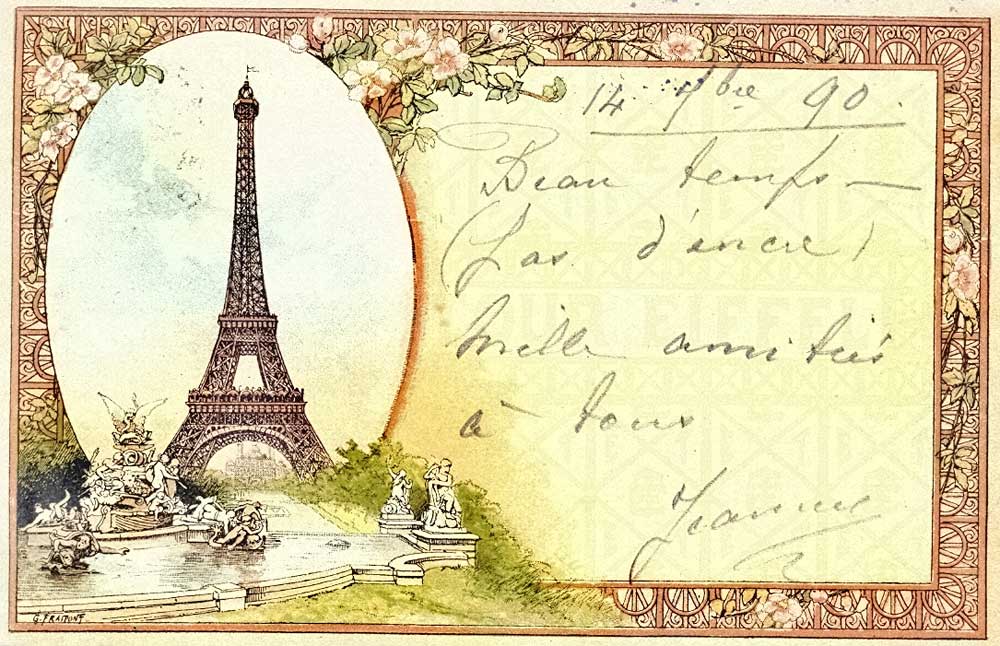 14 7bre 90.
Beau temps —
(Pas d'encre)
Mille amitiés
à tous
Jeanne
G. FRAIPONT